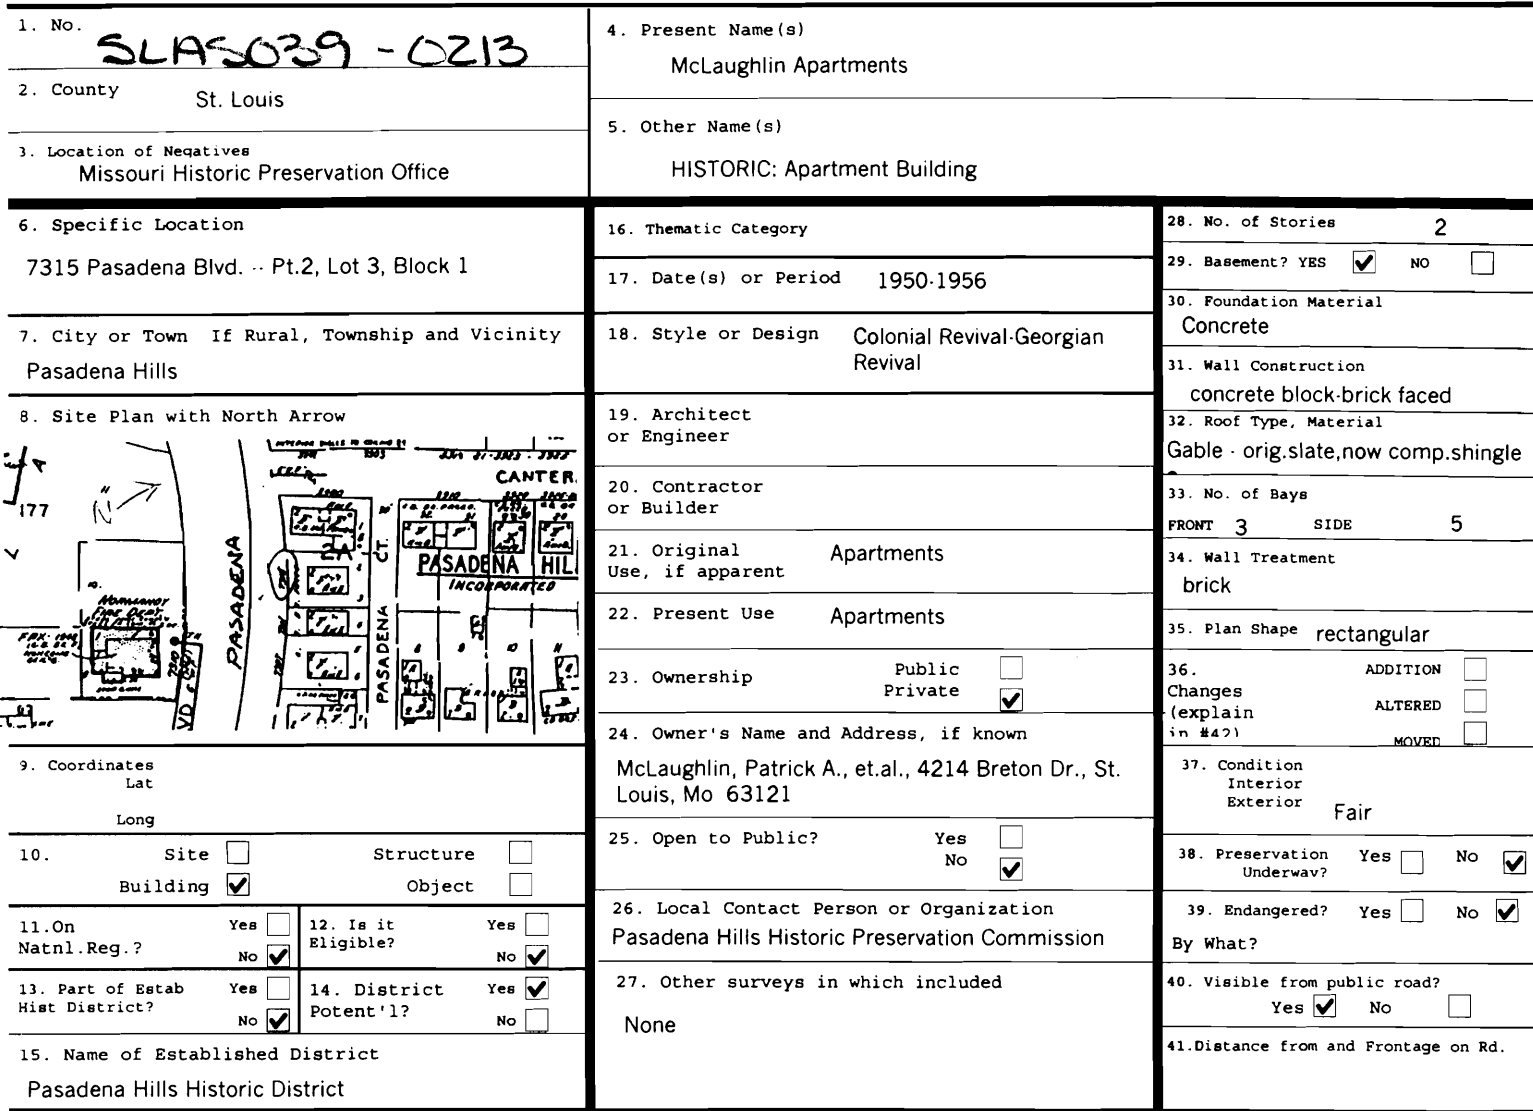 1. No.
SLAS039 - 0213
2. County
St. Louis
3. Location of Negatives
Missouri Historic Preservation Office
4. Present Name(s)
McLaughlin Apartments
5. Other Name(s)
HISTORIC: Apartment Building
6. Specific Location
7315 Pasadena Blvd. -- Pt.2, Lot 3, Block 1
7. City or Town If Rural, Township and Vicinity
Pasadena Hills
8. Site Plan with North Arrow
177
N
CANTER.
PASADENA
2A
CT.
PASADENA HIL
INCORPORATED
PASADENA
NORMANDY
FIRE DEPT
VD
9. Coordinates
Lat
Long
10. Site Structure
Building Object
11.On Yes
Natnl.Reg.?
No
12. Is it Yes
Eligible?
No
13. Part of Estab Yes
Hist District?
No
14. District Yes
Potent'l?
No
15. Name of Established District
Pasadena Hills Historic District
16. Thematic Category
17. Date(s) or Period 1950-1956
18. Style or Design Colonial Revival-Georgian
Revival
19. Architect
or Engineer
20. Contractor
or Builder
21. Original Apartments
Use, if apparent
22. Present Use Apartments
23. Ownership Public
Private
24. Owner's Name and Address, if known
McLaughlin, Patrick A., et.al., 4214 Breton Dr., St.
Louis, Mo 63121
25. Open to Public? Yes
No
26. Local Contact Person or Organization
Pasadena Hills Historic Preservation Commission
27. Other surveys in which included
None
28. No. of Stories 2
29. Basement? YES NO
30. Foundation Material
Concrete
31. Wall Construction
concrete block-brick faced
32. Roof Type, Material
Gable - orig.slate,now comp.shingle
33. No. of Bays
FRONT 3 SIDE 5
34. Wall Treatment
brick
35. Plan Shape rectangular
36. ADDITION
Changes
(explain ALTERED
in #42) MOVED
37. Condition
Interior
Exterior Fair
38. Preservation Yes No
Underway?
39. Endangered? Yes No
By What?
40. Visible from public road?
Yes No
41.Distance from and Frontage on Rd.